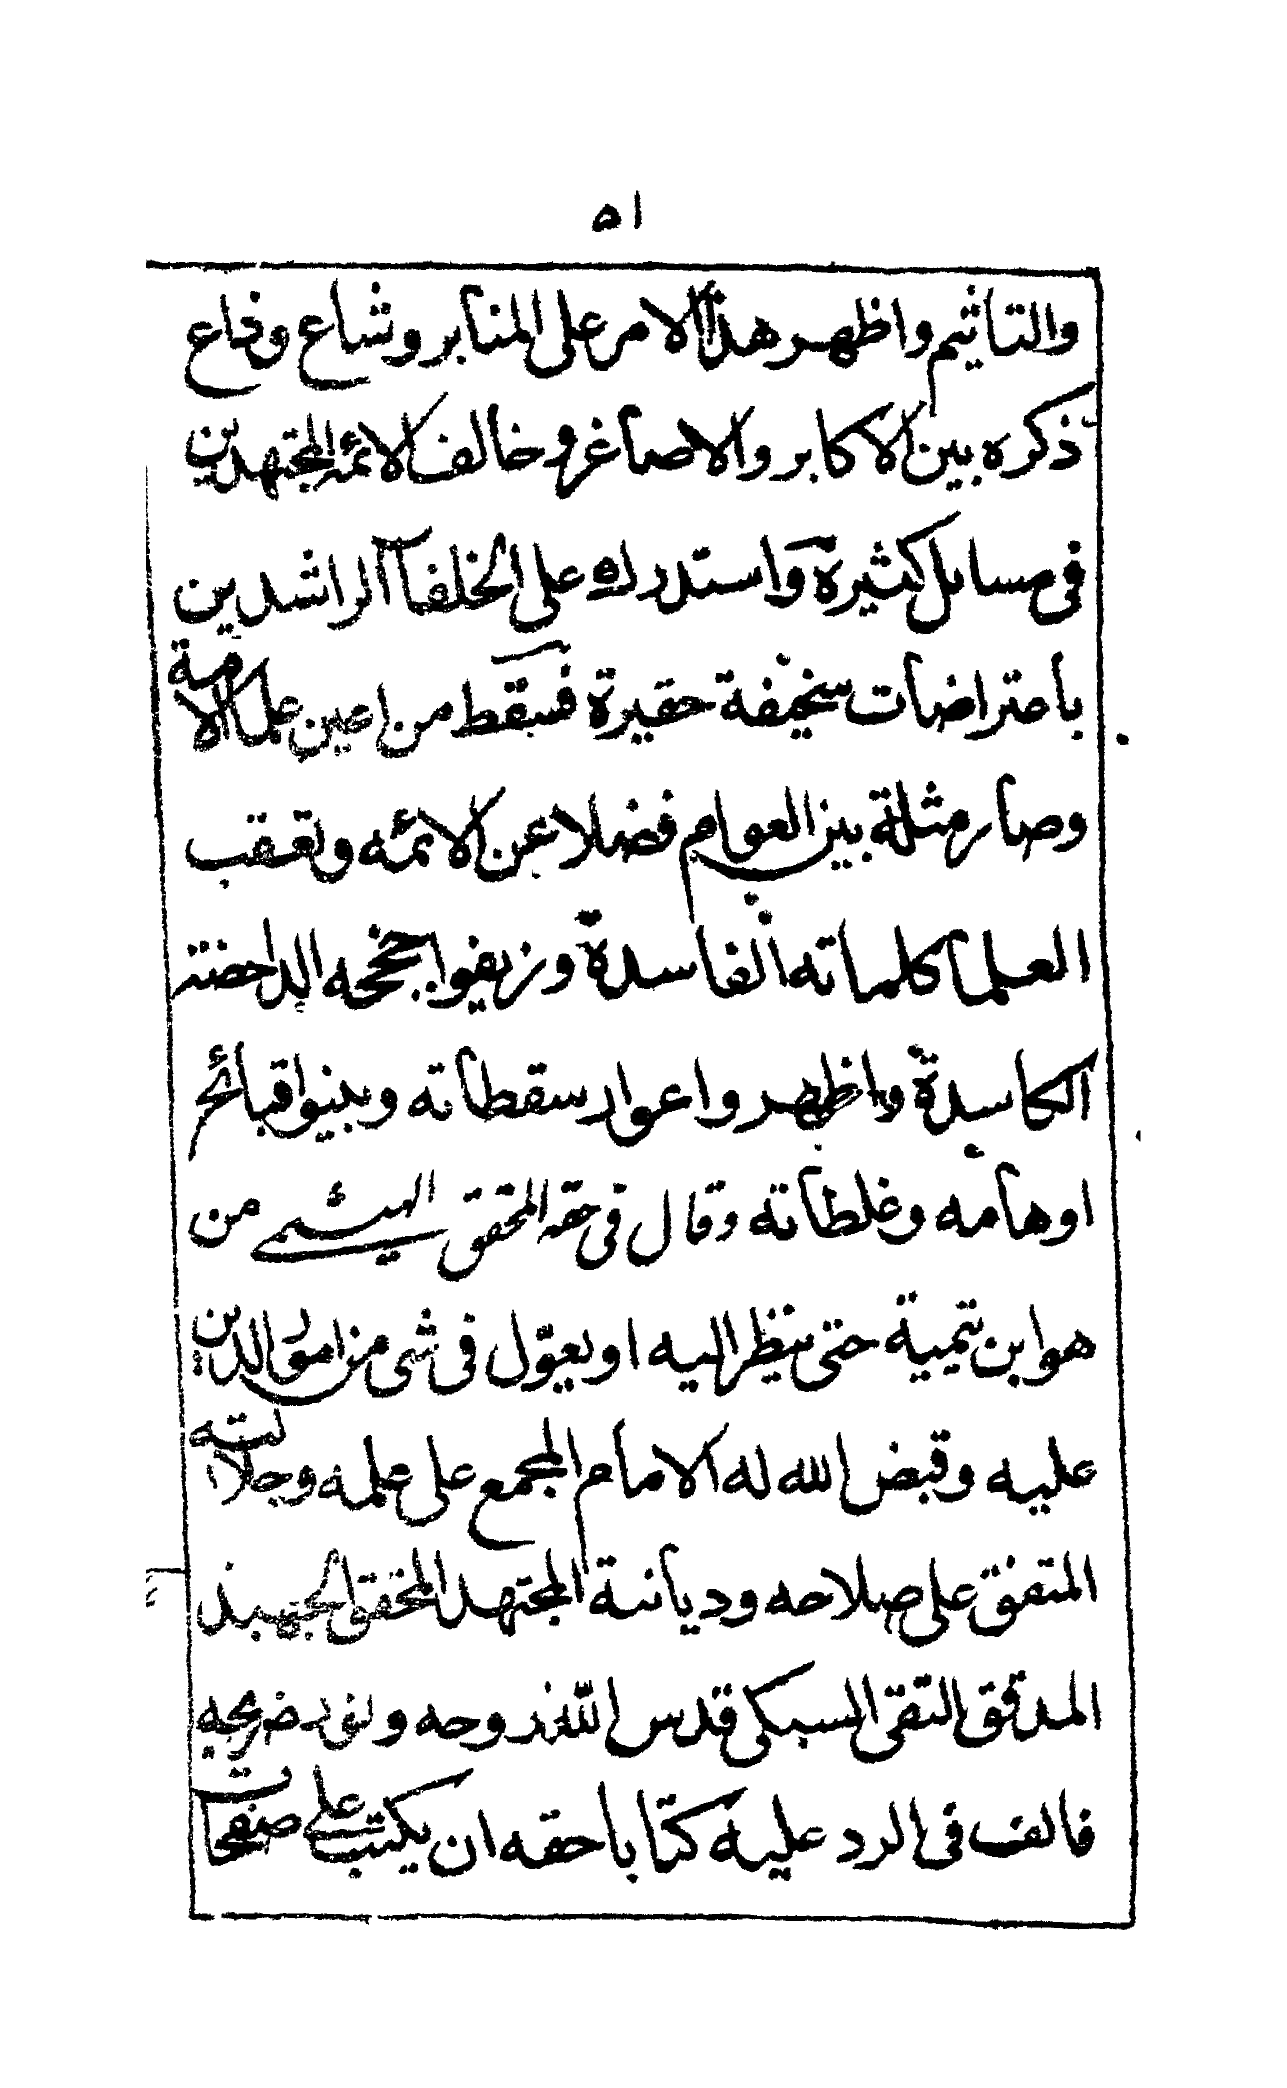 ٥١
والتاثيم واظهر هذا الامر على المنابر وشاع وذاع
ذكره بين الاكابر والاصاغر وخالف الائمة المجتهدين
فى مسايل كثيرة واستدرك على الخلفا الراشدين
باعتراضات سخيفة حقيرة فسقط من اعين علما الامة
وصار مثلة بين العوام فضلا عن الائمه وتعقب
العلما كلماته الفاسدة وزيفوا حججه الداحضته
الكاسدة واظهروا عوار سقطاته وبينوا قبائح
اوهامه وغلطاته وقال فى حقه المحقق الهيثمى من
هو ابن تيمية حتى ينظر اليه او يعوّل فى شى من امور الدين
عليه وقبض الله له الامام المجمع على علمه وجلالته
المتفق على صلاحه وديانته المجتهد المحقق الجهبذ
المدقق التقى السبكى قدس الله روحه ونور ضريحه
فالف فى الرد عليه كتابا حقه ان يكتب على صفحات